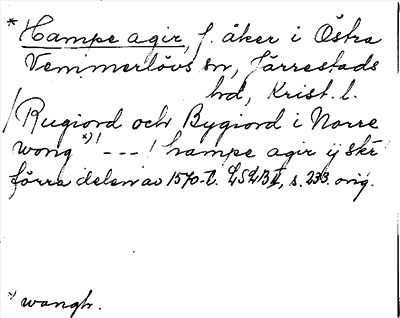 * Hampe agir, f. åker i Östra
Vemmerlövs sn, Järrestads
hd, Krist. l.
/Rugiord och Bygiord i Norre
wong x) / --- / hampe agir ij skr
förra delen av 1570-t. LSLB II, s. 233. orig.
x) wangh.